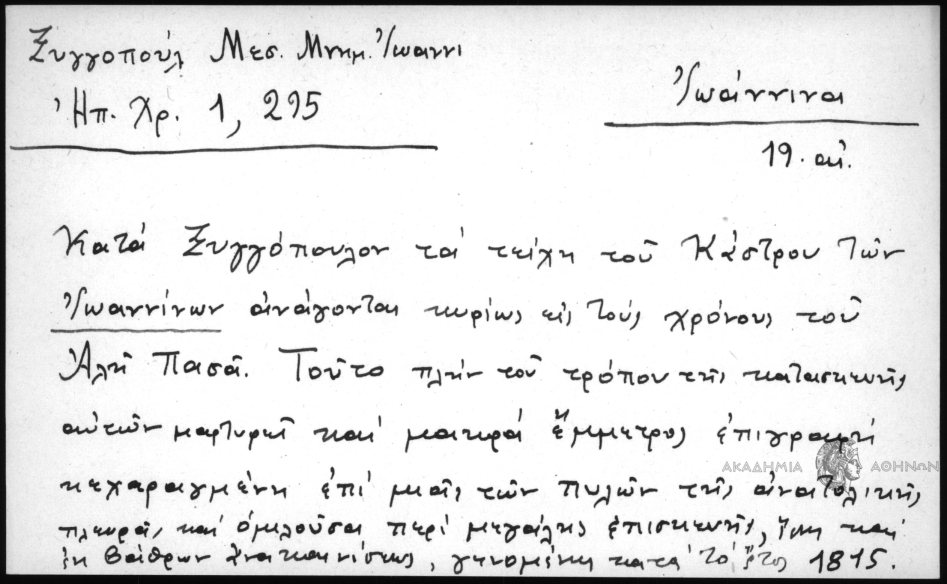 Ξυγγοπούλ Μεσ. Μνημ. Ἰωαννι
Ἠπ. Χρ. 1, 295
Ἰωάννινα
19. αἰ.
Κατὰ Ξυγγόπουλον τὰ τείχη τοῦ Κάστρου τῶν
Ἰωαννίνων ἀνάγονται κυρίως εἰς τοὺς χρόνους τοῦ
Ἀλῆ Πασᾶ. Τοῦτο πλὴν τοῦ τρόπου τῆς κατασκευῆς
αὐτῶν μαρτυρεῖ καὶ μακρὰ ἔμμετρος ἐπιγραφὴ
κεχαραγμένη ἐπὶ μιᾶς τῶν πυλῶν τῆς ἀνατολικῆς
πλευρᾶς καὶ ὁμιλοῦσα περὶ μεγάλης ἐπισκευῆς, ἴσως καὶ
ἐκ βάθρων ἀνακαινίσεως, γενομένης κατὰ τὸ ἔτος 1815.
ΑΚΑΔΗΜΙΑ ΑΘΗΝΩΝ